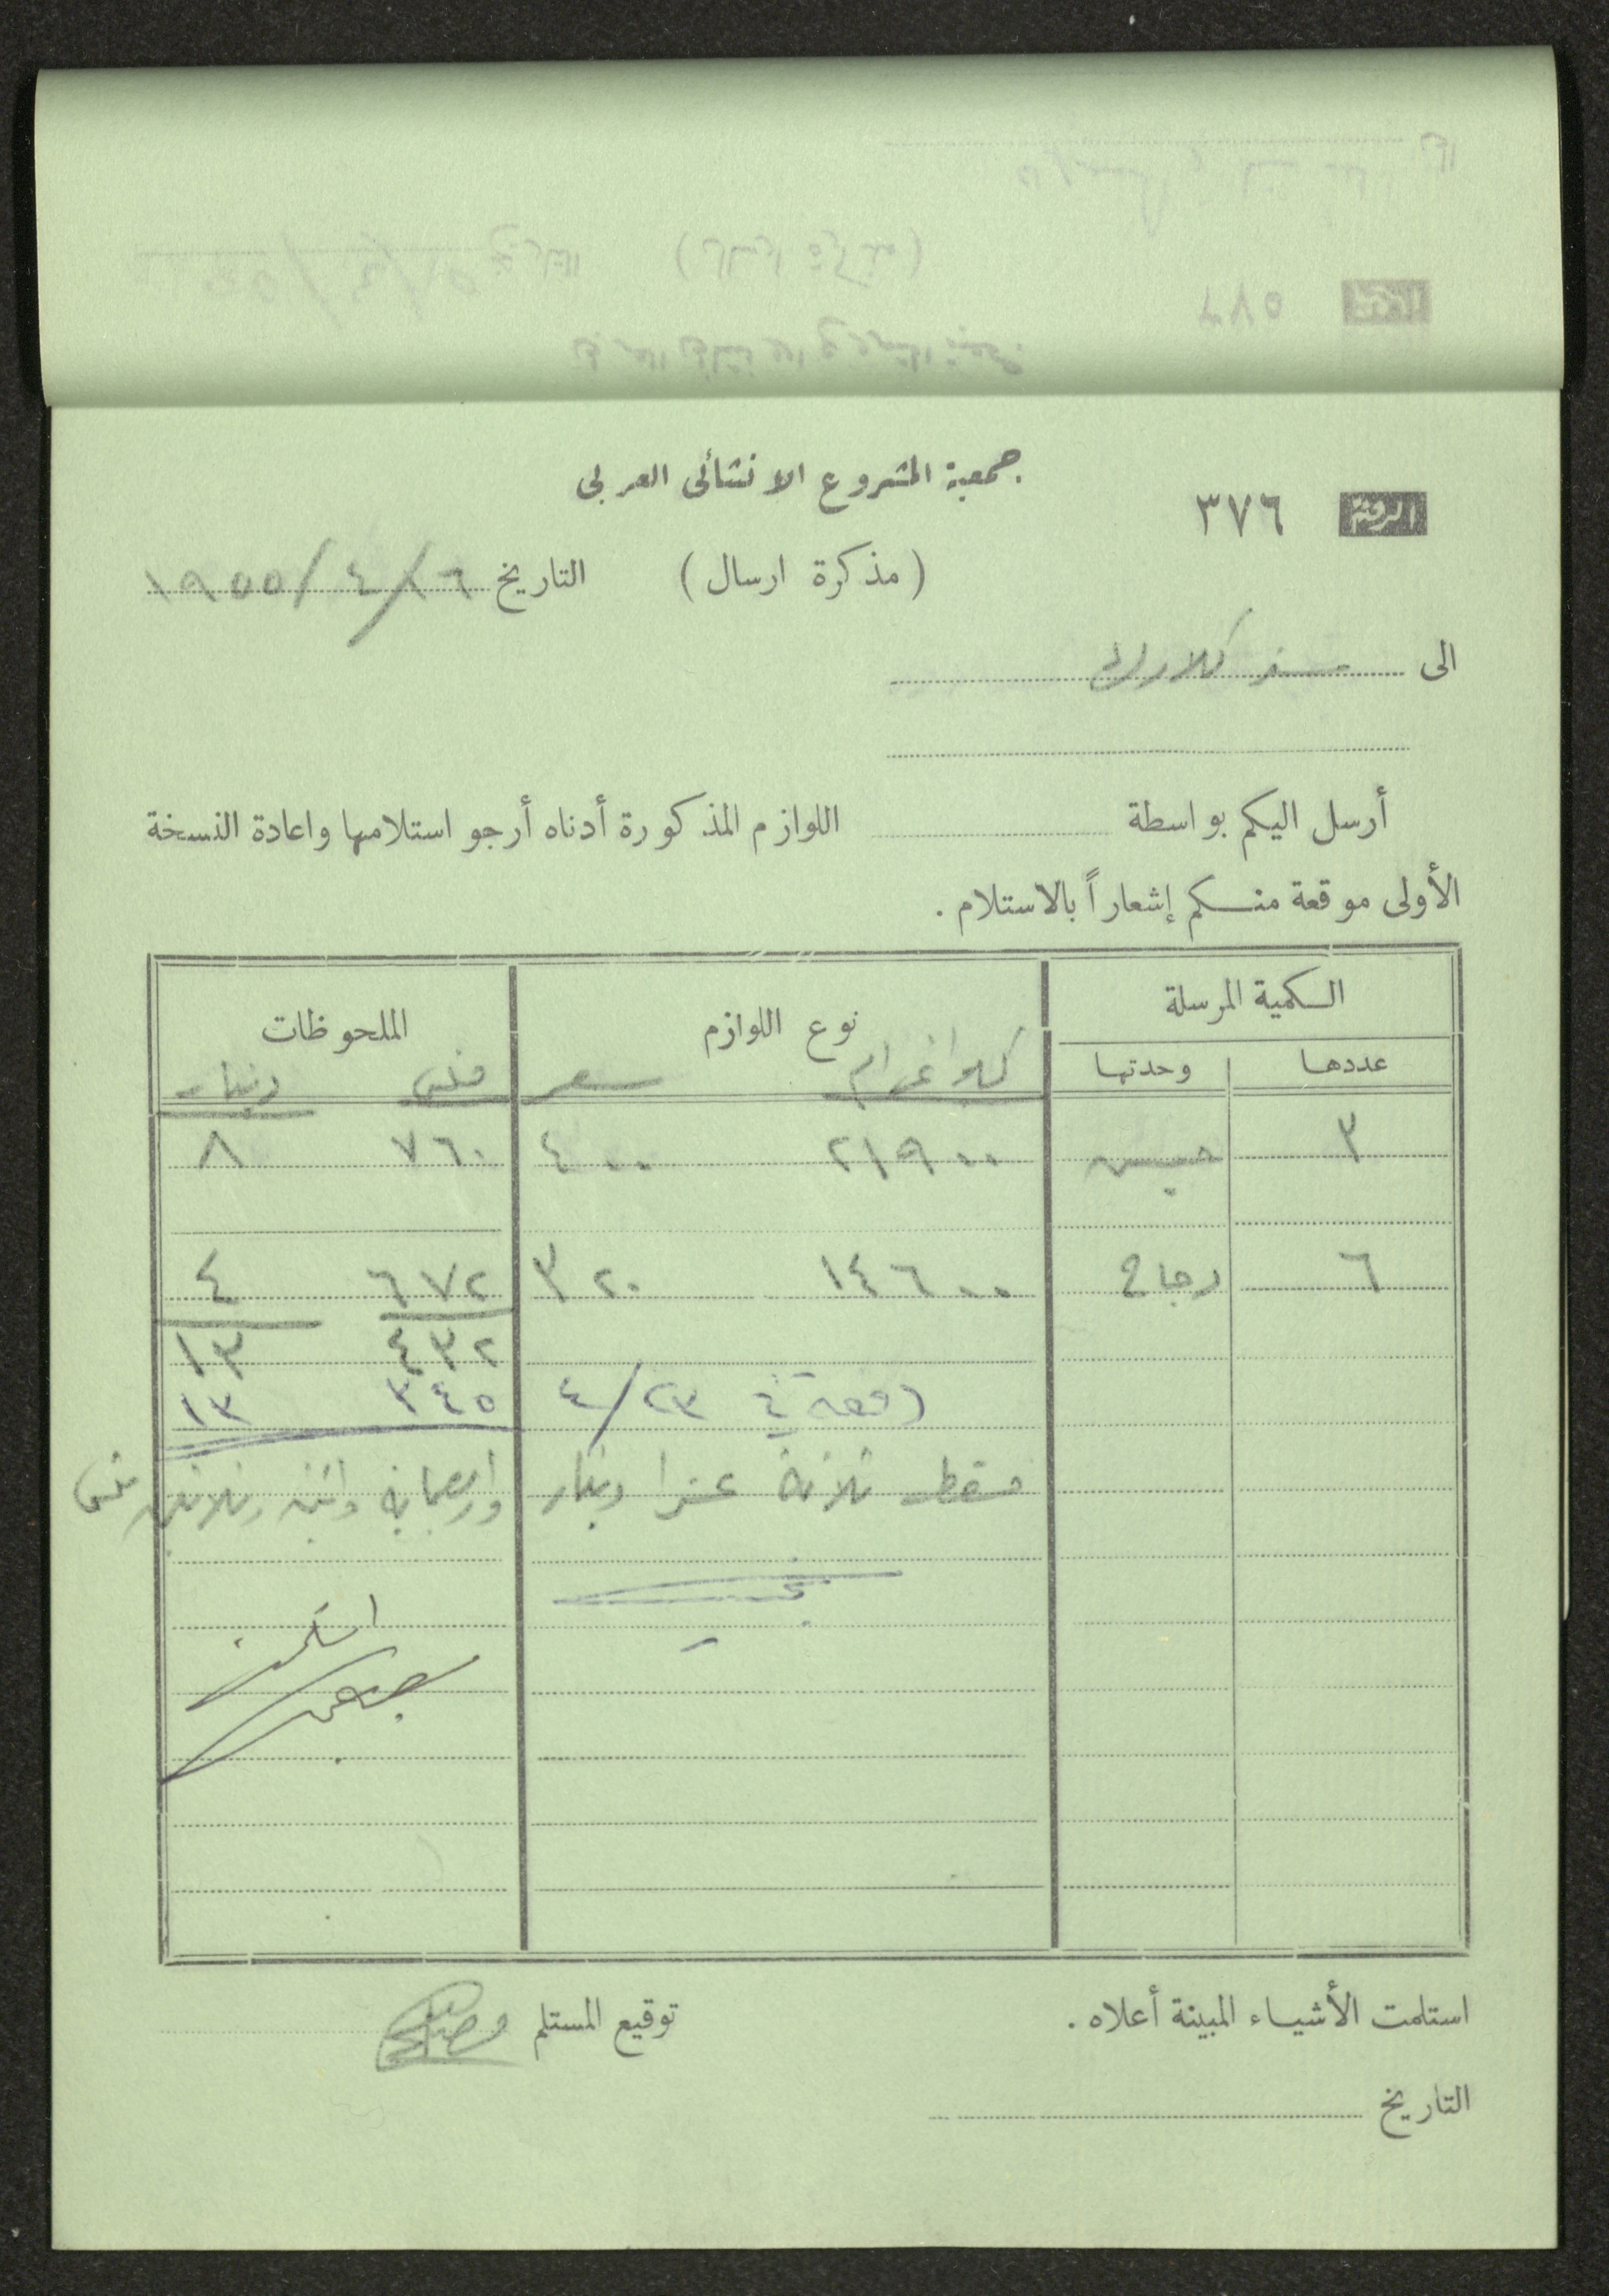 جمعية المشروع الانشائى العربى
الرقم ٣٧٦
(مذكرة ارسال) التاريخ ١٦/٤/١٩٥٥
الى مستر
أرسل اليكم بواسطة اللوازم المذكورة أدناه أرجو استلامها واعادة النسخة
الأولى موقعة منكم إشعاراً بالاستلام .
الكمية المرسلة نوع اللوازم الملحوظات
عددها وحدتها كلوا غرام سعر فلس دينار
٣ حبيس ٢١٩٠٠ ٤٠٠ ٧٦٠ ٨
٦ دجاج ١٤٦٠٠ ٣٢٠ ٦٧٢ ٤
٤٣٢ ١٣
دفعة في ٢٣/٤ ٣٤٥ ١٣
فقط ثلاثة عشرا دينار واربعماية واثنين وثلاثين فلس
استلمت
استلمت الأشياء المبينة أعلاه . توقيع المستلم
التاريخ